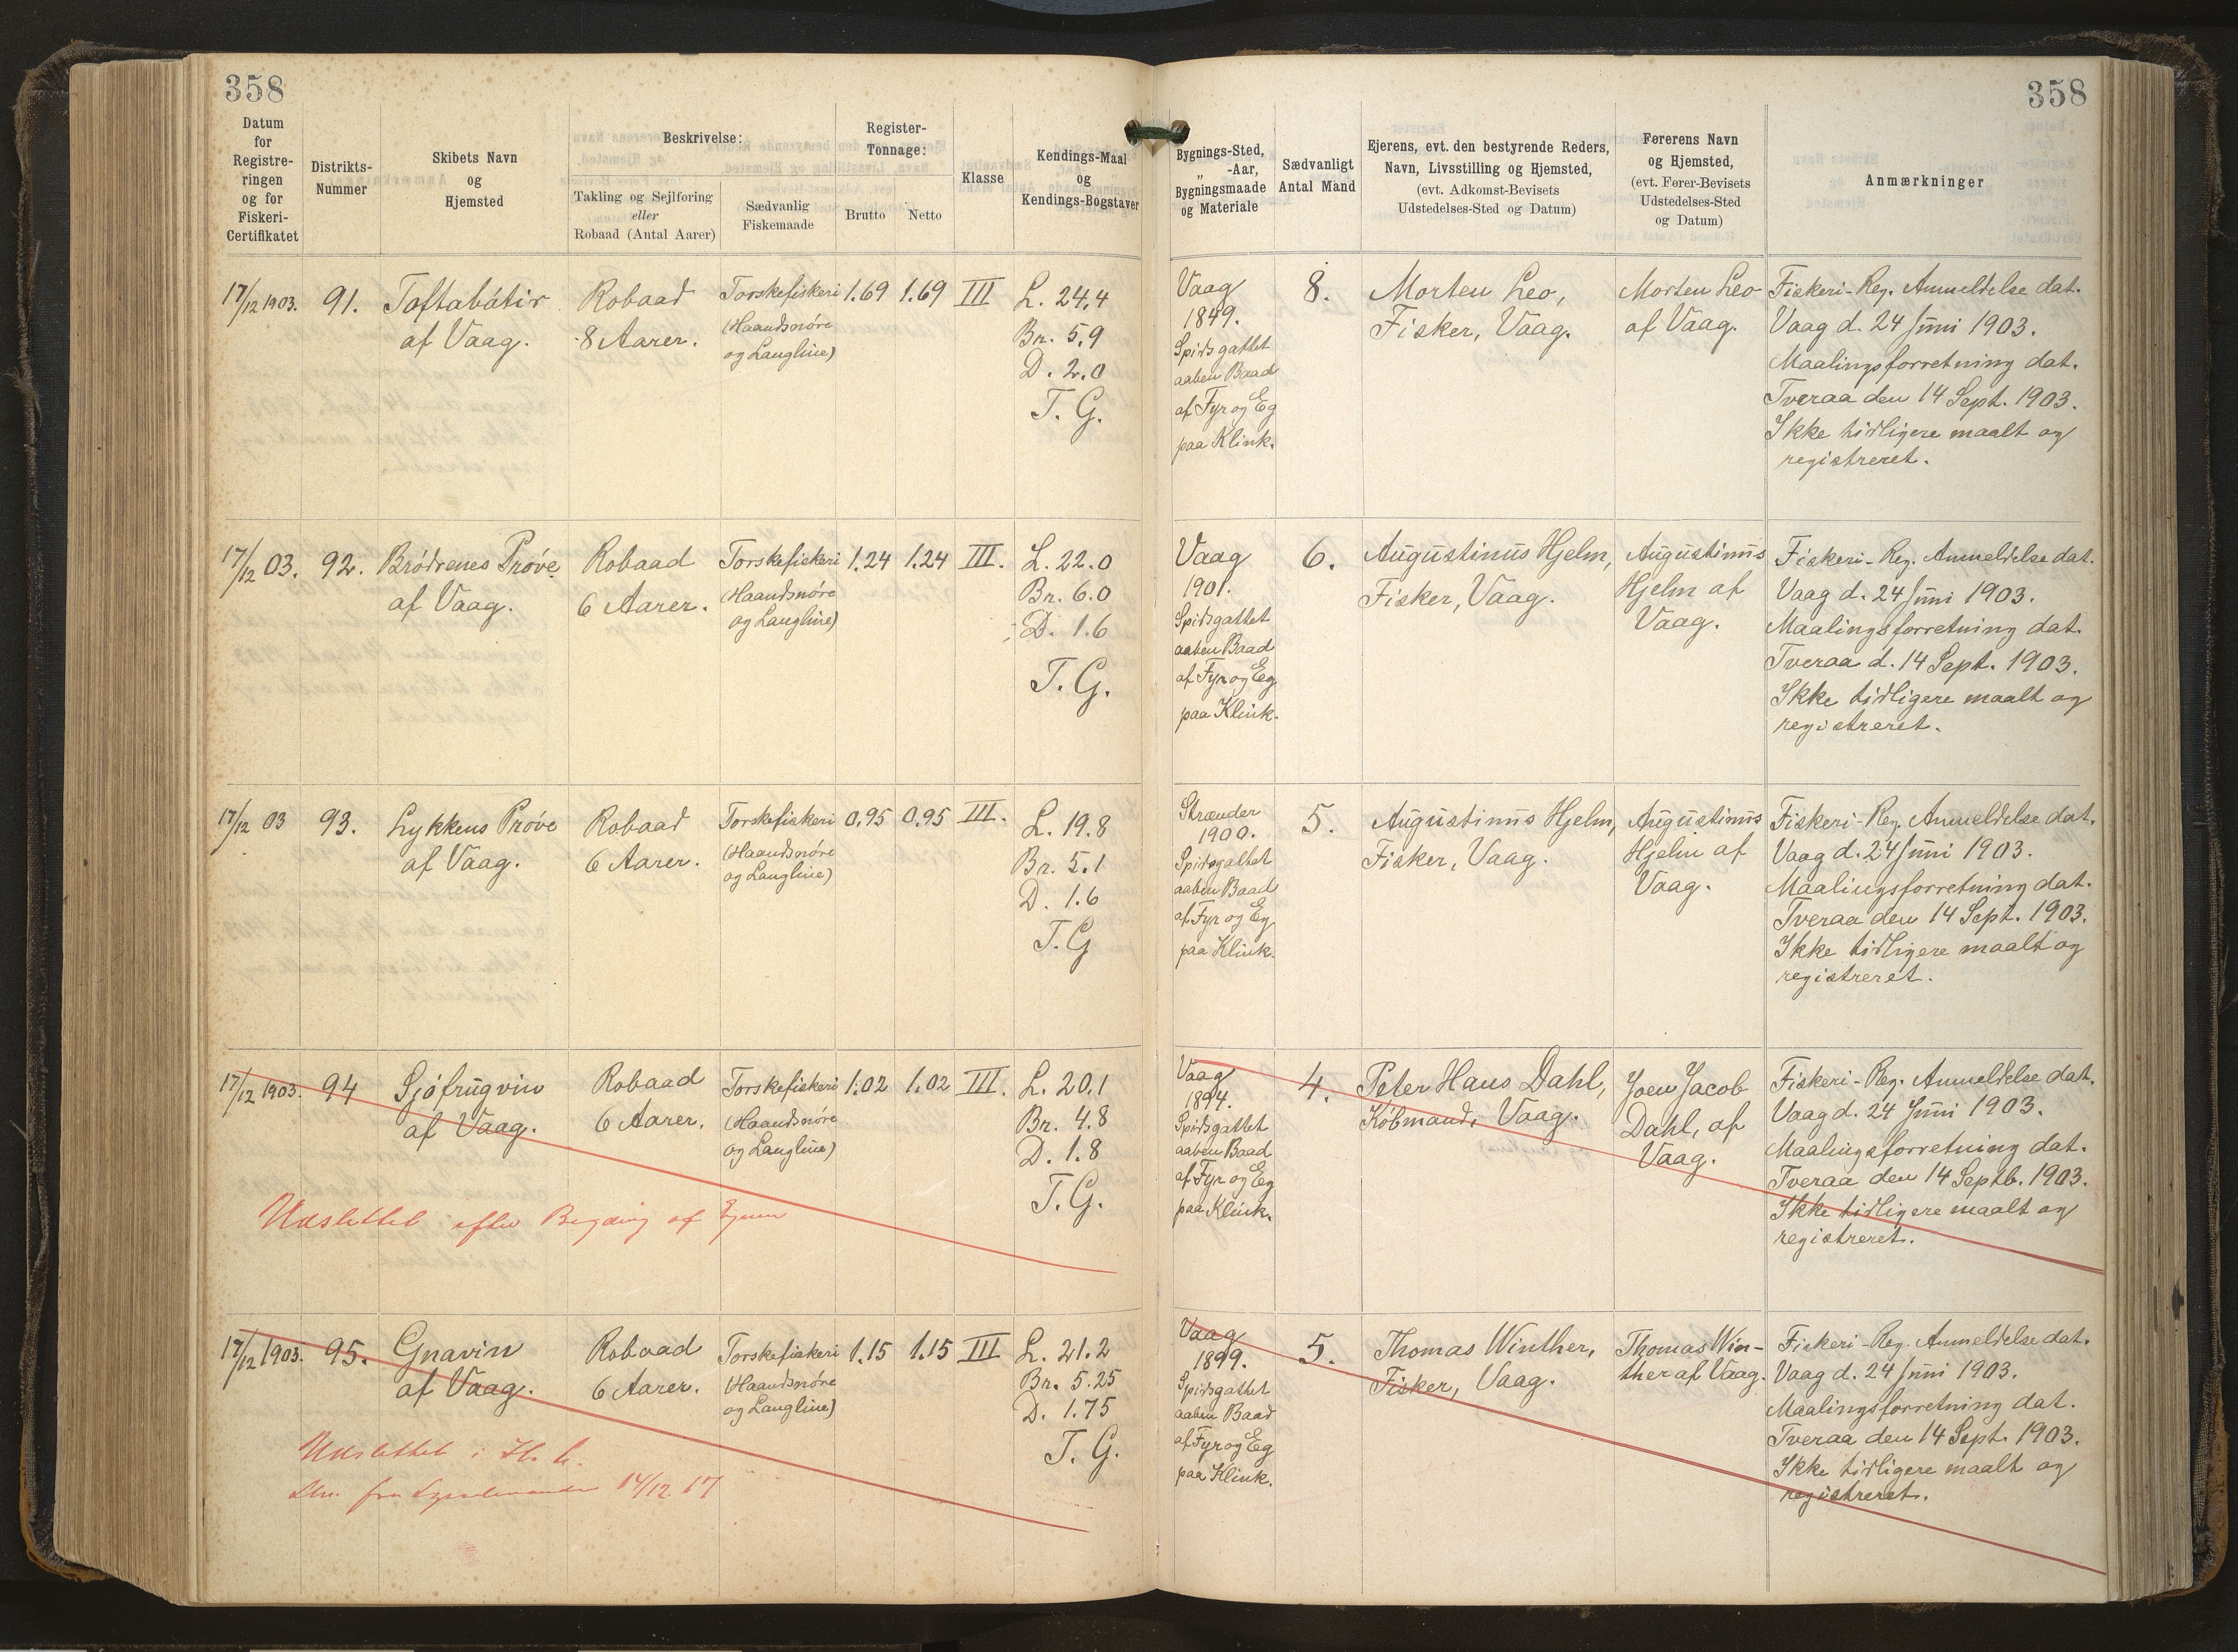 358
358
Datum
for
Registre-
ringen
og for
Fiskeri-
Certifikatet
Distrikts-
Nummer
Skibets Navn
og
Hjemsted
Beskrivelse:
Takling og Sejlføring
eller
Robaad (Antal Aarer)
Sædvanlig
Fiskemaade
Register-
Tonnage:
Brutto
Netto
Klasse
Kendings-Maal
og
Kendings-Bogstaver
Bygnings-Sted,
„ -Aar,
Bygningsmaade
og Materiale
Sædvanligt
Antal Mand
Ejerens, evt. den bestyrende Reders,
Navn, Livsstilling og Hjemsted,
(evt. Adkomst-Bevisets
Udstedelses-Sted og Datum)
Førerens Navn
og Hjemsted,
(evt. Fører-Bevisets
Udstedelses-Sted
og Datum)
Anmærkninger
17/12 1903.
91.
Toftabátir
af Vaag.
Robaad
8 Aarer.
Torskefiskeri
(Haandsnøre
og Langline)
1.69
1.69
III
L. 24,4
Br. 5,9
D. 2.0
T. G.
Vaag
1849.
Spidsgattet
aaben Baad
af Fyr og Eg
paa Klink.
8.
Morten Leo,
Fisker, Vaag.
Morten Leo
af Vaag.
Fiskeri-Reg. Anmeldelse dat.
Vaag d. 24 Juni 1903.
Maalingsforretning dat.
Tveraa den 14 Sept. 1903.
Ikke tidligere maalt og
registreret.
17/12 03.
92.
Brödrenes Prøve
af Vaag.
Robaad
6 Aarer.
Torskefiskeri
(Haandsnøre
og Langline)
1.24
1.24
III.
L. 22.0
Br. 6.0
D. 1.6
T. G.
Vaag
1901.
Spidsgattet
aaben Baad
af Fyr og Eg
paa Klink.
6.
Augustinus Hjelm,
Fisker, Vaag.
Augustinus
Hjelm af
Vaag.
Fiskeri-Reg. Anmeldelse dat.
Vaag d. 24 Juni 1903.
Maalingsforretning dat.
Tveraa d. 14 Sept. 1903.
Ikke tidligere maalt og
registreret.
17/12 03
93.
Lykkens Prøve
af Vaag.
Robaad
6 Aarer.
Torskefiskeri
(Haandsnøre
og Langline)
0.95
0.95
III.
L. 19.8
Br. 5.1
D. 1.6
T. G
Strænder
1900.
Spidsgattet
aaben Baad
af Fyr og Eg
paa Klink.
5.
Augustinus Hjelm,
Fisker, Vaag.
Augustinus
Hjelm af
Vaag.
Fiskeri-Reg. Anmeldelse dat.
Vaag d. 24 Juni 1903.
Maalingsforretning dat.
Tveraa den 14 Sept. 1903.
Ikke tidligere maalt og
registreret.
17/12 1903.
94
Sjófrúgvin
af Vaag.
Robaad
6 Aarer.
Torskefiskeri
(Haandsnøre
og Langline)
1.02
1.02
III.
L. 20.1
Br. 4.8
D. 1.8
T. G.
Vaag
1894.
Spidsgattet
aaben Baad
af Fyr og Eg
paa Klink.
4.
Peter Hans Dahl,
Købmand, Vaag.
Joen Jacob
Dahl, af
Vaag.
Fiskeri-Reg. Anmeldelse dat.
Vaag d. 24 Juni 1903.
Maalingsforretning dat.
Tveraa den 14 Septb. 1903.
Ikke tidligere maalt og
registreret.
Udslettet efter Begæring af Ejeren
17/12 1903.
95.
Gnavin
af Vaag.
Robaad
6 Aarer.
Torskefiskeri
(Haandsnøre
og Langline)
1.15
1.15
III
L. 21.2
Br. 5.25
D. 1.75
T. G.
Vaag
1899.
Spidsgattet
aaben Baad
af Fyr og Eg
paa Klink.
5.
Thomas Winther,
Fisker, Vaag.
Thomas Win-
ther af Vaag.
Fiskeri-Reg. Anmeldelse dat.
Vaag d. 24 Juni 1903.
Maalingsforretning dat.
Tveraa den 14 Sept. 1903.
Ikke tidligere maalt og
registreret.
Udslettet i H. t.
Skr. fra Sysselmanden 14/12 17